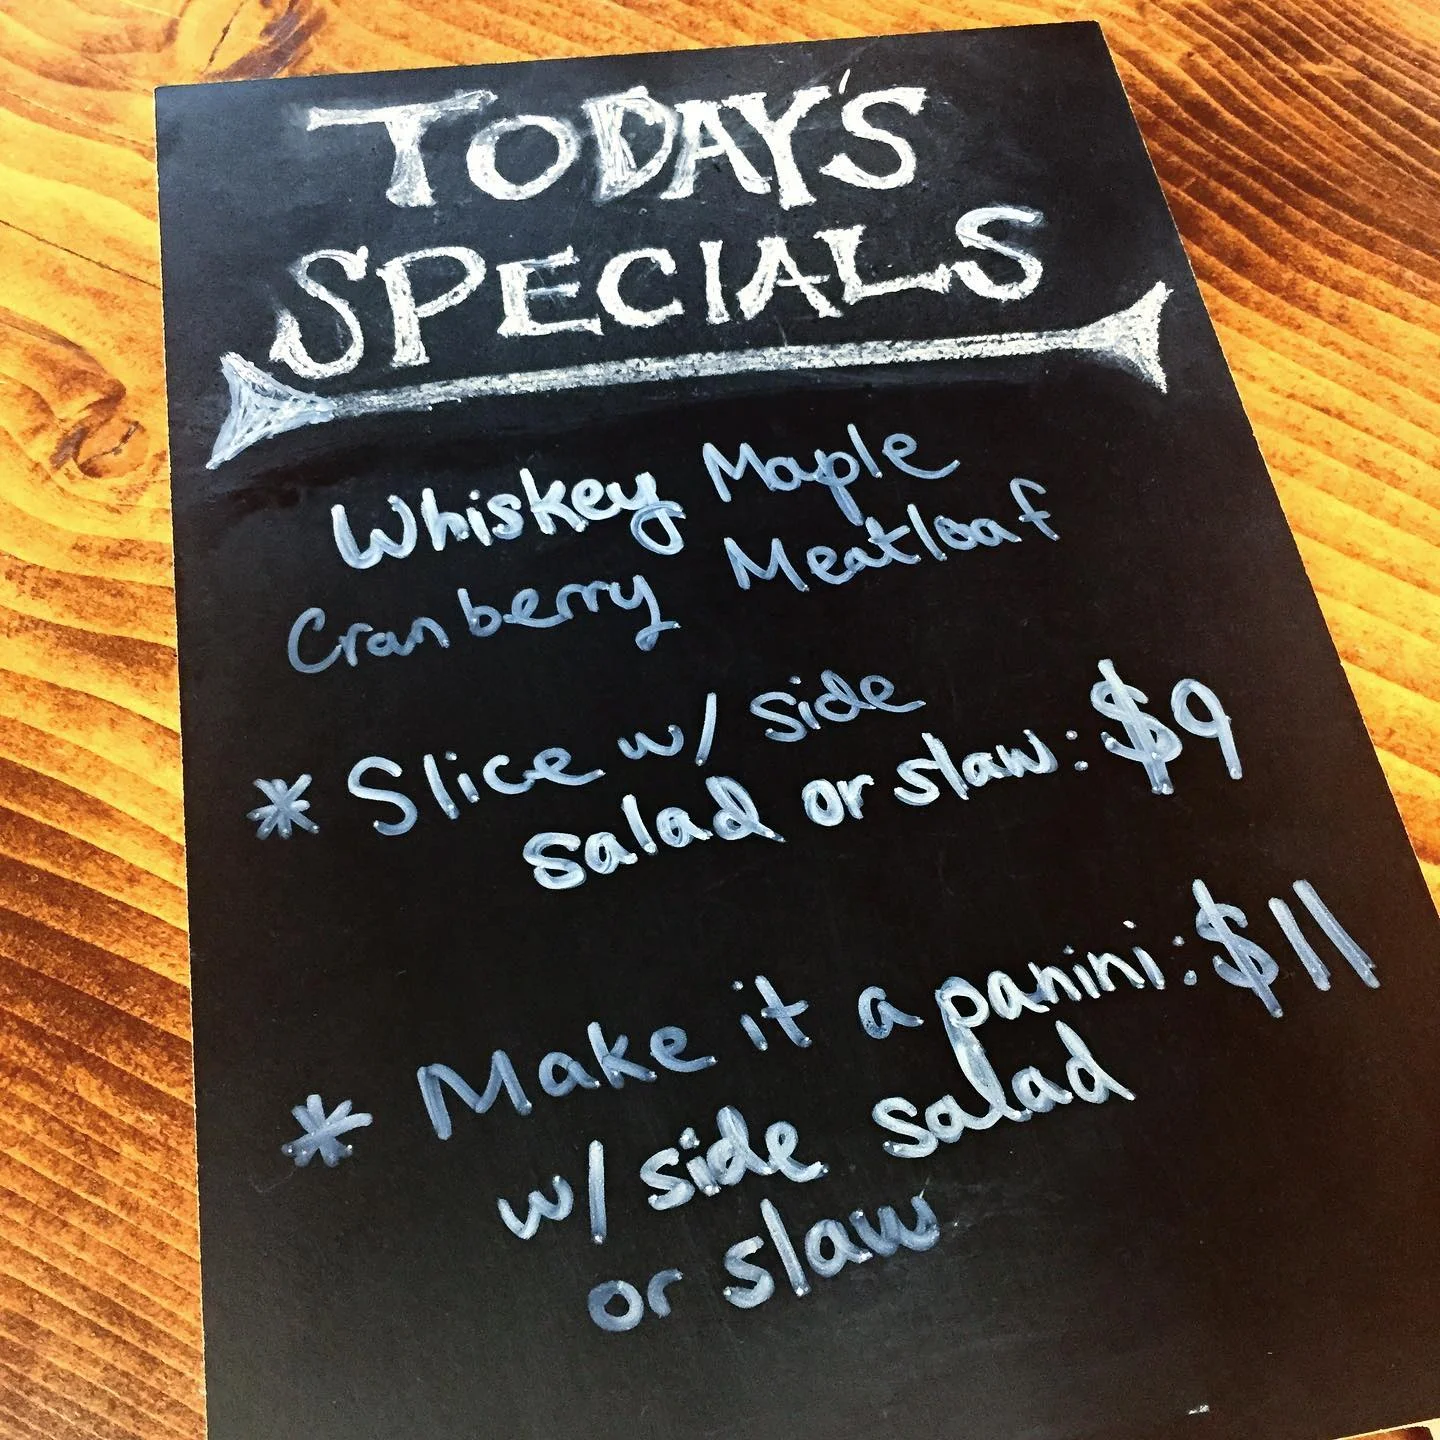 TODAY'S
SPECIALS
Whiskey Maple
Cranberry Meatloaf
* Slice w/ side
salad or slaw: $9
* Make it a panini: $11
w/ side salad
or slaw